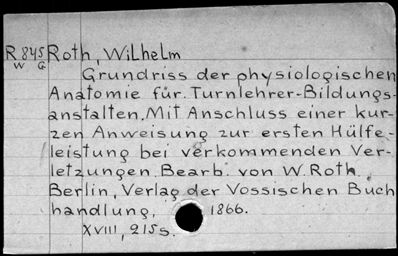 R 845 Roth, Wilhelm
W G
Grundriss der physiologischen
Anatomie für Turnlehrer-Bildungs-
anstalten, Mit Anschluss einer kur-
zen Anweisung zur ersten Hülfe-
leistung bei verkommenden Ver-
letzungen. Bearb. von W. Roth.
Berlin, Verlag der Vossischen Buch
handlung, 1866.
XVIII, 215 s.